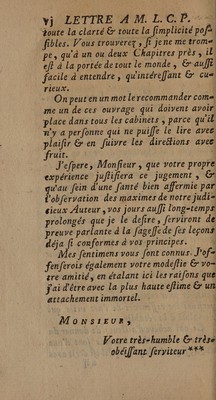 vj LETTRE A M. L. C. P.
toute la clarté & toute la simplicité pos-
sibles. Vous trouverez, si je ne me trom-
pe, qu'à un ou deux Chapitres près, il
est à la portée de tout le monde, & aussi
facile à entendre, qu'intéressant & cu-
rieux.
On peut en un mot le recommander com-
me un de ces ouvrage qui doivent avoir
place dans tous les cabinets, parce qu'il
n'y a personne qui ne puisse le lire avec
plaisir & en suivre les directions avec
fruit.
J'espere, Monsieur, que votre propre
expérience justifiera ce jugement, &
qu'au sein d'une santé bien affermie par
l'observation des maximes de notre judi-
cieux Auteur, vos jours aussi long-temps
prolongés que je le desire, serviront de
preuve parlante à la sagesse de ses leçons
déja si conformes à vos principes.
Mes sentimens vous sont connus. J'of-
fenserois également votre modestie & vo-
tre amitié, en étalant ici les raisons que
j'ai d'être avec la plus haute estime & un
attachement immortel.
MONSIEUR,
Votre très-humble & très-
obéissant serviteur ***